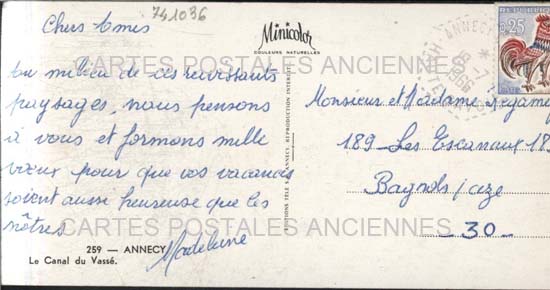 741036
Chers Amis
Au milieu de ces ravissants
paysages, nous pensons
à vous et formons mille
vœux pour que vos vacances
soient aussi heureuse que les
nôtres
Madeleine
259 — ANNECY
Le Canal du Vassé.
Minicolor
COULEURS NATURELLES
REPRODUCTION INTERDITE
ANNECY
1966
0,25
Monsieur et Madame
189 - Les Escanaux 189
Bagnols/Cèze
- 30 -
CARTES POSTALES ANCIENNES
CARTES POSTALES ANCIENNES